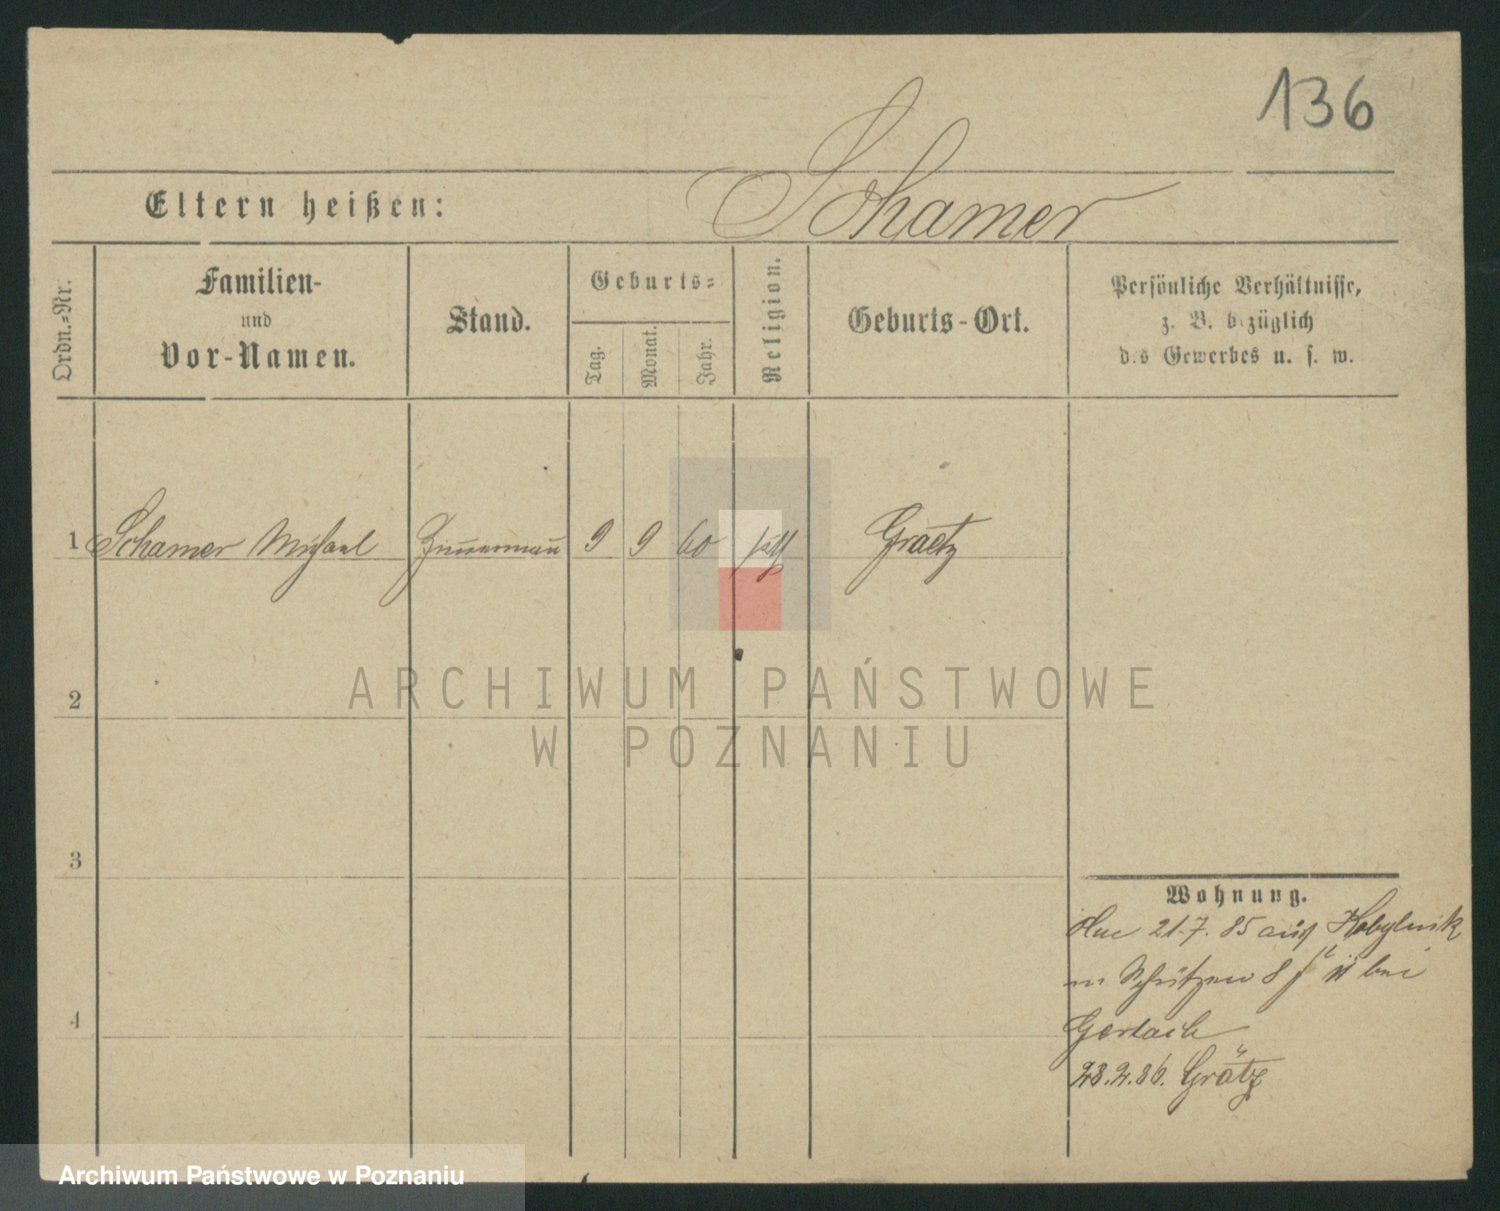 136
Schamer
Eltern heißen:
Ordn.-Nr.
Familien-
und
Vor-Namen.
Stand.
Geburts-
Tag.
Monat.
Jahr.
Religion.
Geburts-Ort.
Persönliche Verhältnisse,
z. B. bezüglich
des Gewerbes u. s. w.
1 Schamer Michael Zimmermann 9 9 60 kath Graetz
2
3
4
Wohnung.
21.7.85 aus Kobylnik
Schützen 8 bei
Gerlach
28.2.86. Grätz
ARCHIWUM PAŃSTWOWE
W POZNANIU
Archiwum Państwowe w Poznaniu